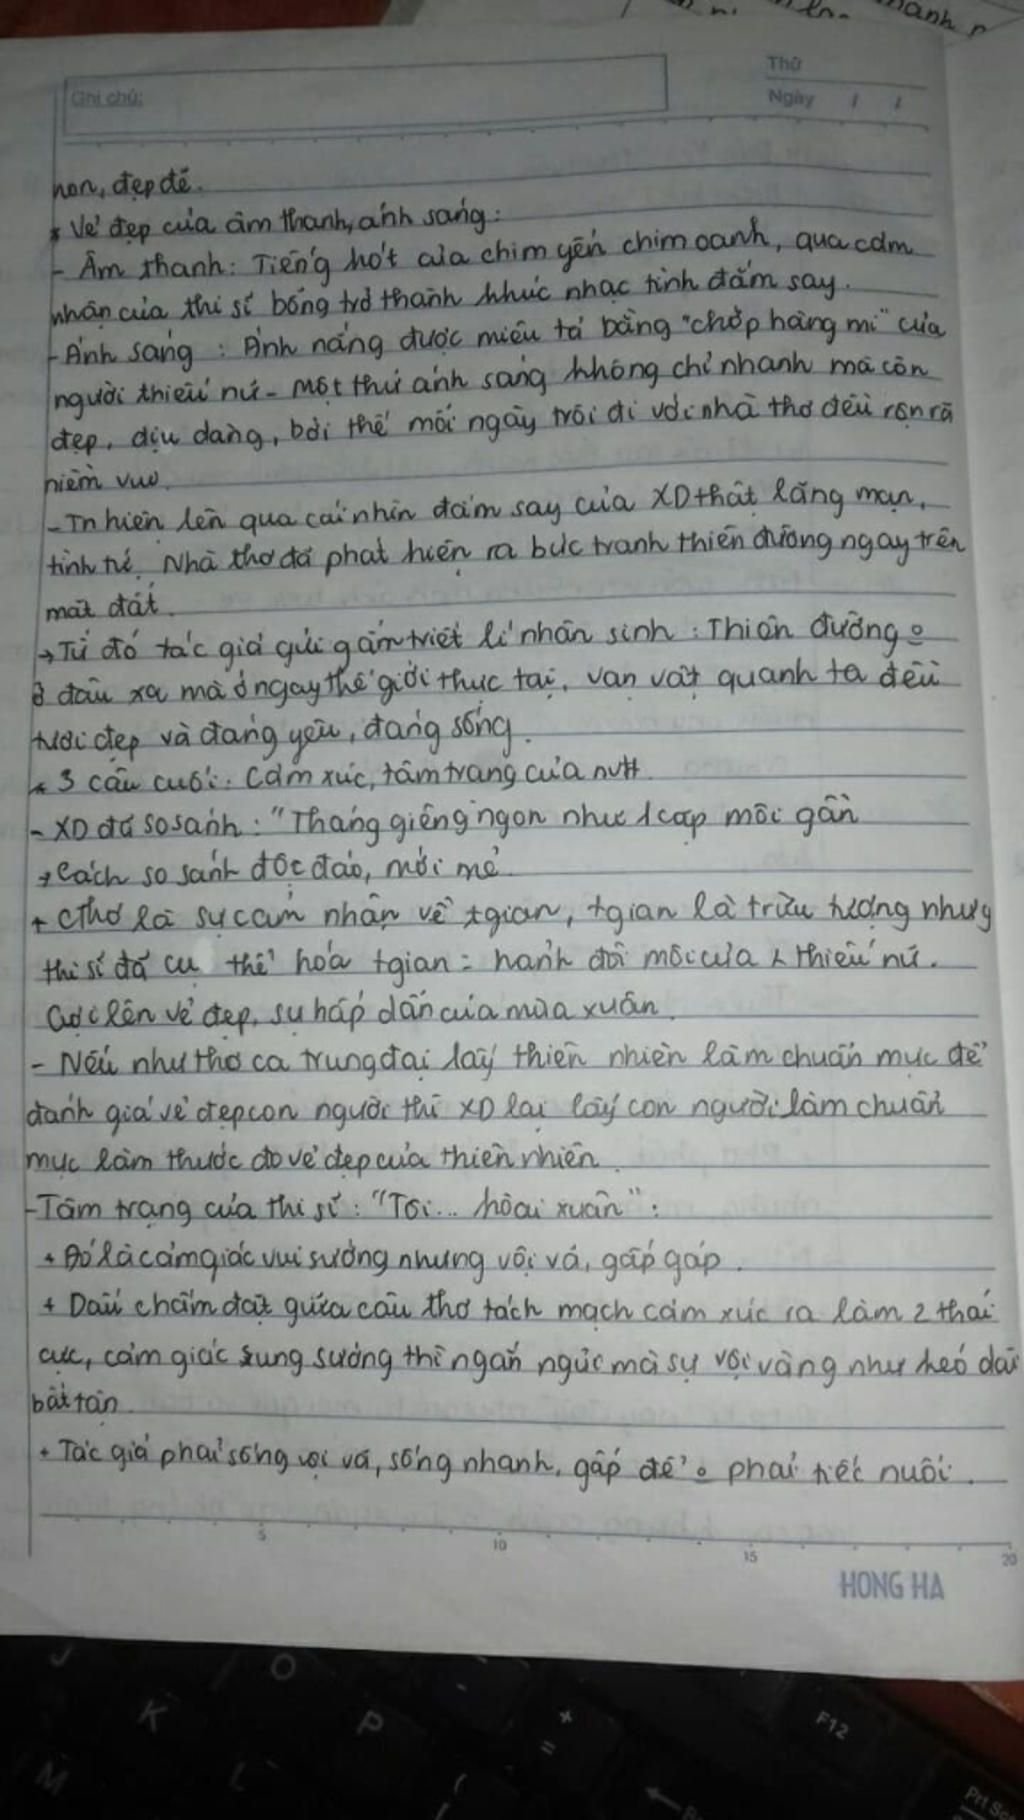 Ghi chú:
Thứ
Ngày / /
non, đẹp đẽ.
* Vẻ đẹp của âm thanh, ánh sáng:
- Âm thanh: Tiếng hót của chim yến chim oanh, qua cảm
nhận của thi sĩ bỗng trở thành khúc nhạc tình đắm say.
- Ánh sáng: Ánh nắng được miêu tả bằng "chớp hàng mi" của
người thiếu nữ - một thứ ánh sáng không chỉ nhanh mà còn
đẹp, dịu dàng, bởi thế mỗi ngày trôi đi với nhà thơ đều rộn rã
niềm vui.
- Tn hiện lên qua cái nhìn đắm say của XD thật lãng mạn,
tinh tế. Nhà thơ đã phát hiện ra bức tranh thiên đường ngay trên
mặt đất.
→ Từ đó tác giả gửi gắm triết lí nhân sinh: Thiên đường o
ở đâu xa mà ở ngay thế giới thực tại, vạn vật quanh ta đều
tươi đẹp và đáng yêu, đáng sống.
* 3 câu cuối: Cảm xúc, tâm trạng của nvtt
- XD đã so sánh: "Tháng giêng ngon như 1 cặp môi gần
→ Cách so sánh độc đáo, mới mẻ.
+ Cthơ là sự cảm nhận về tgian, tgian là trừu tượng nhưg
thi sĩ đã cụ thể hoá tgian = hành đôi môi của thiếu nữ.
Gợi lên vẻ đẹp, sự hấp dẫn của mùa xuân.
- Nếu như thơ ca trung đại lấy thiên nhiên làm chuẩn mực để
đánh giá vẻ đẹp con người thì XD lại lấy con người làm chuẩn
mực làm thước đo vẻ đẹp của thiên nhiên.
- Tâm trạng của thi sĩ: "Tôi... hoài xuân":
+ Đó là cảm giác vui sướng nhưng vội vã, gấp gáp.
+ Dấu chấm đặt giữa câu thơ tách mạch cảm xúc ra làm 2 thái
cực, cảm giác sung sướng thì ngắn ngủi mà sự vội vàng như kéo dài
bất tận.
+ Tác giả phải sống vội vã, sống nhanh, gấp để o phải tiếc nuối.
5 10 15 20
HONG HA
J
O
K
P
+
=
F12
M
L
Prt Sc